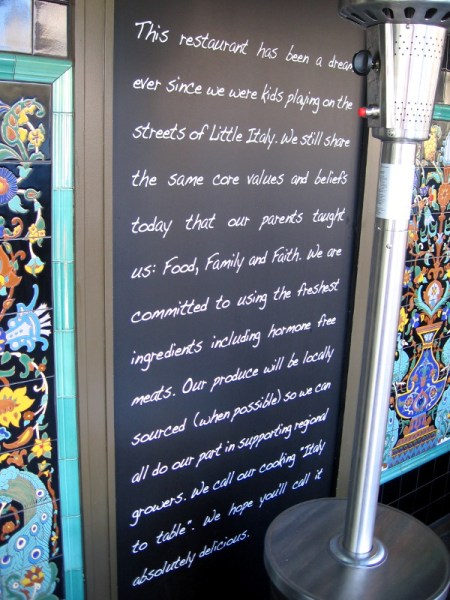 This restaurant has been a dream
ever since we were kids playing on the
streets of Little Italy. We still share
the same core values and beliefs
today that our parents taught
us: Food, Family and Faith. We are
committed to using the freshest
ingredients including hormone free
meats. Our produce will be locally
sourced (when possible) so we can
all do our part in supporting regional
growers. We call our cooking "Italy
to table". We hope you'll call it
absolutely delicious.